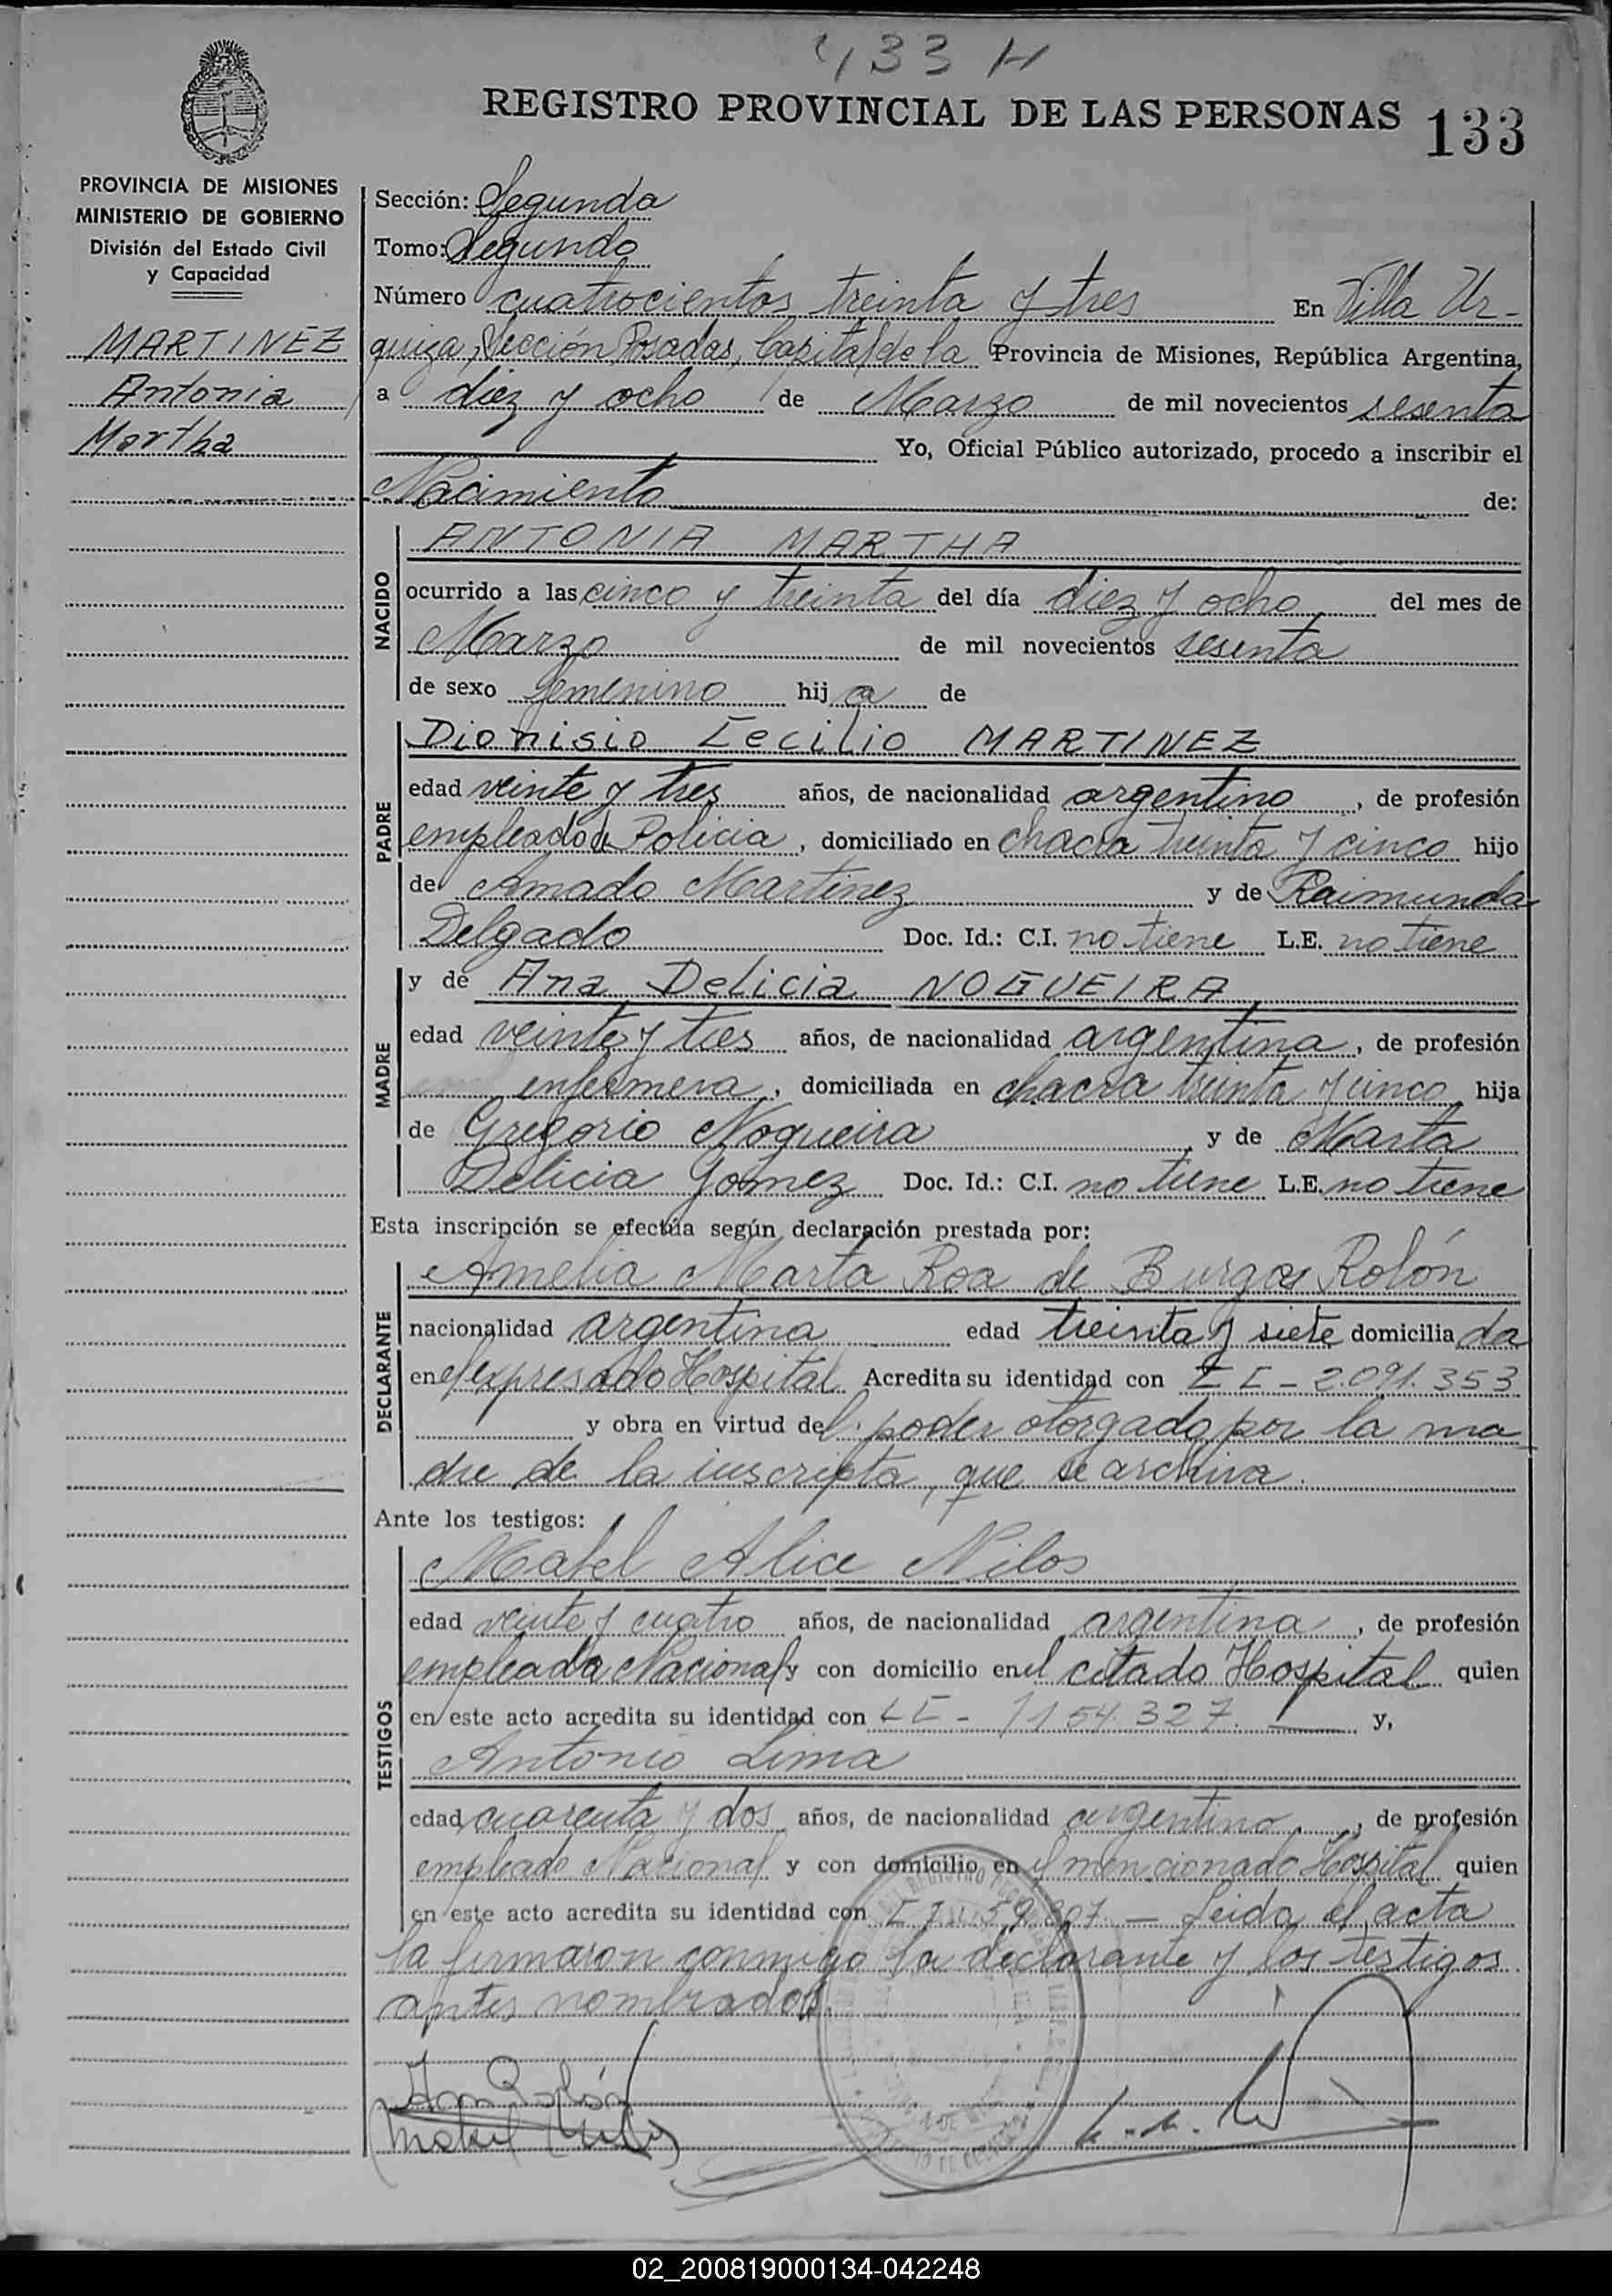 433 H
REGISTRO PROVINCIAL DE LAS PERSONAS 133
PROVINCIA DE MISIONES
MINISTERIO DE GOBIERNO
División del Estado Civil
y Capacidad
MARTINEZ
Antonia
Martha
Sección: Segunda
Tomo: Segundo
Número cuatrocientos treinta y tres En Villa Ur-
quiza, Sección Posadas, Capital de la Provincia de Misiones, República Argentina,
a diez y ocho de Marzo de mil novecientos sesenta
Yo, Oficial Público autorizado, procedo a inscribir el
Nacimiento de:
NACIDO
ANTONIA MARTHA
ocurrido a las cinco y treinta del día diez y ocho del mes de
Marzo de mil novecientos sesenta
de sexo femenino hija de
PADRE
Dionisio Cecilio MARTINEZ
edad veinte y tres años, de nacionalidad argentino, de profesión
empleado de Policia, domiciliado en chacra treinta y cinco hijo
de Amado Martinez y de Raimunda
Delgado Doc. Id.: C.I. no tiene L.E. no tiene
MADRE
y de Ana Delicia NOGUEIRA
edad veinte y tres años, de nacionalidad argentina, de profesión
enfermera, domiciliada en chacra treinta y cinco hija
de Gregorio Nogueira y de Marta
Delicia Gómez Doc. Id.: C.I. no tiene L.E. no tiene
Esta inscripción se efectúa según declaración prestada por:
DECLARANTE
Amelia Marta Roa de Burgos Rolón
nacionalidad argentina edad treinta y siete domiciliada
en el expresado Hospital Acredita su identidad con 2.091.353
y obra en virtud del poder otorgado por la ma
dre de la inscripta, que se archiva.
Ante los testigos:
TESTIGOS
Mabel Alice Nilos
edad veinte y cuatro años, de nacionalidad argentina, de profesión
empleada Nacional y con domicilio en el citado Hospital quien
en este acto acredita su identidad con y,
Antonio Lima
edad cuarenta y dos años, de nacionalidad argentino, de profesión
empleado Nacional y con domicilio en el mencionado Hospital quien
en este acto acredita su identidad con — Leida el acta
la firmaron conmigo la declarante y los testigos
antes nombrados.
02_200819000134-042248